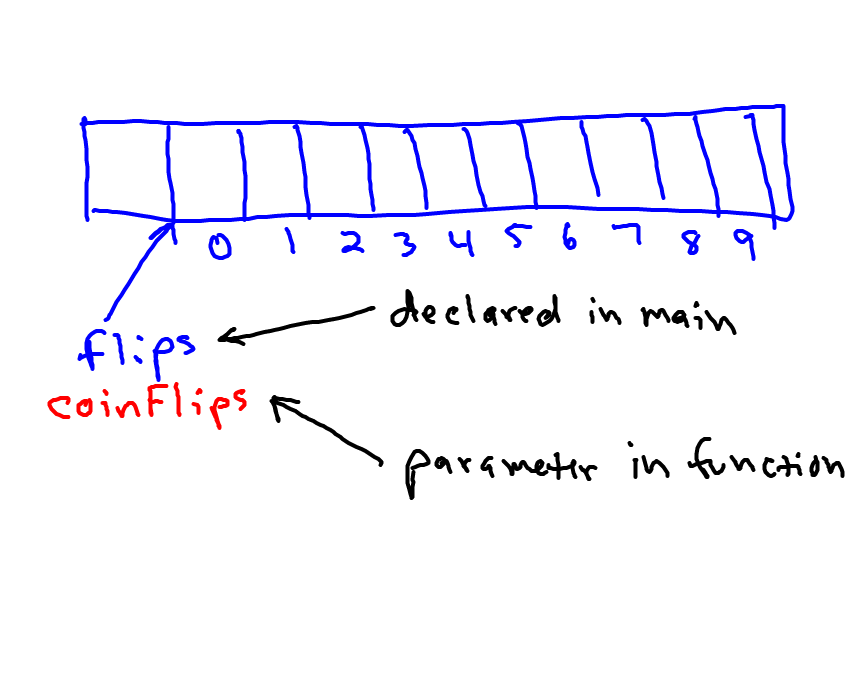 0 1 2 3 4 5 6 7 8 9
flips
declared in main
coinFlips
parameter in function